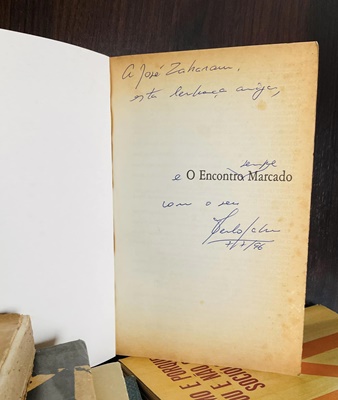 A José Zaharam,
esta lembrança amiga,
sempre
e O Encontro Marcado
com o seu
7/7/96